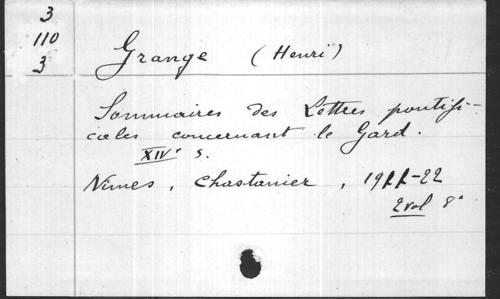 3
110
3
Grange (Henri)
Sommaires des Lettres pontifi-
cales concernant le Gard.
XIVe s.
Nîmes, Chastanier, 1911-22
2 vol 8°